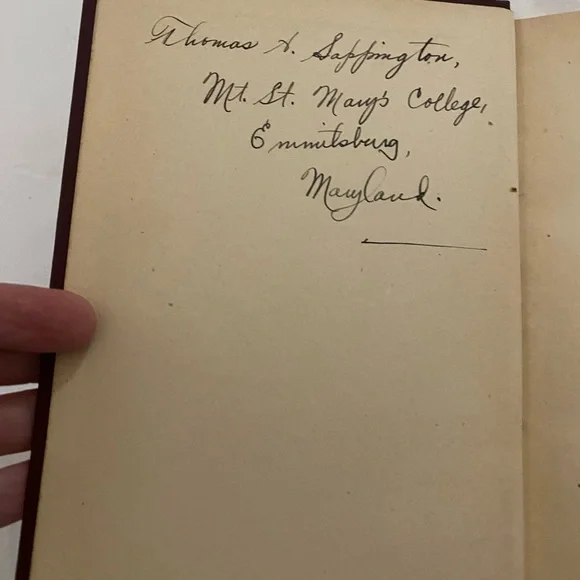 Thomas A. Sappington,
Mt. St. Mary's College,
Emmitsburg,
Maryland.